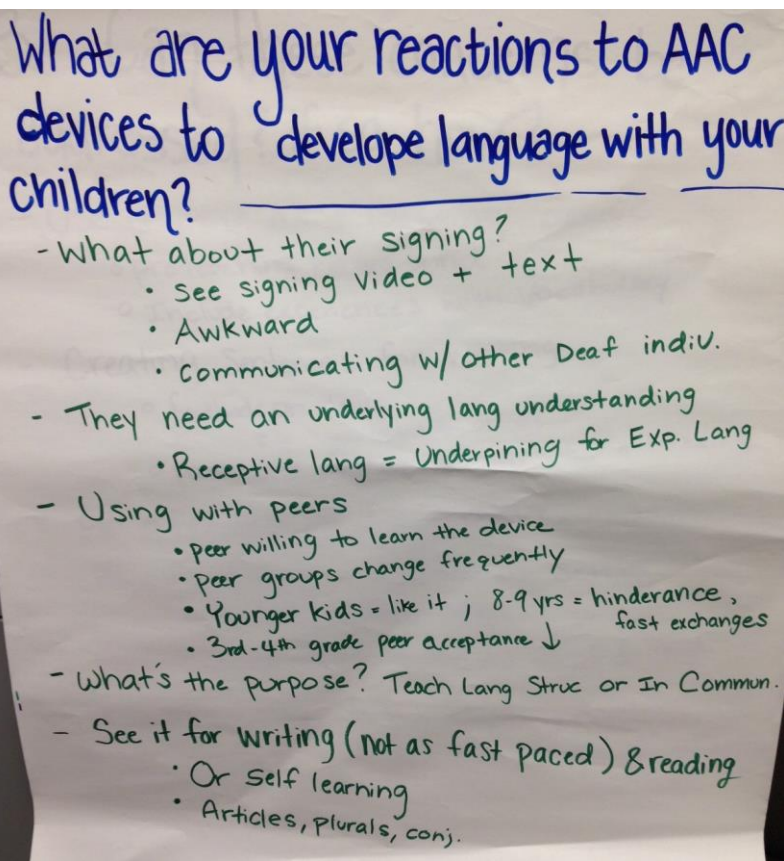 What are your reactions to AAC
devices to develope language with your
children?
- What about their signing?
• see signing video + text
• Awkward
• communicating w/ other Deaf indiv.
- They need an underlying lang understanding
• Receptive lang = Underpining for Exp. Lang
- Using with peers
• peer willing to learn the device
• peer groups change frequently
• Younger kids = like it ; 8-9 yrs = hinderance,
fast exchanges
• 3rd-4th grade peer acceptance ↓
- What's the purpose? Teach Lang Struc or In Commun.
- See it for writing (not as fast paced) & reading
• Or self learning
• Articles, plurals, conj.